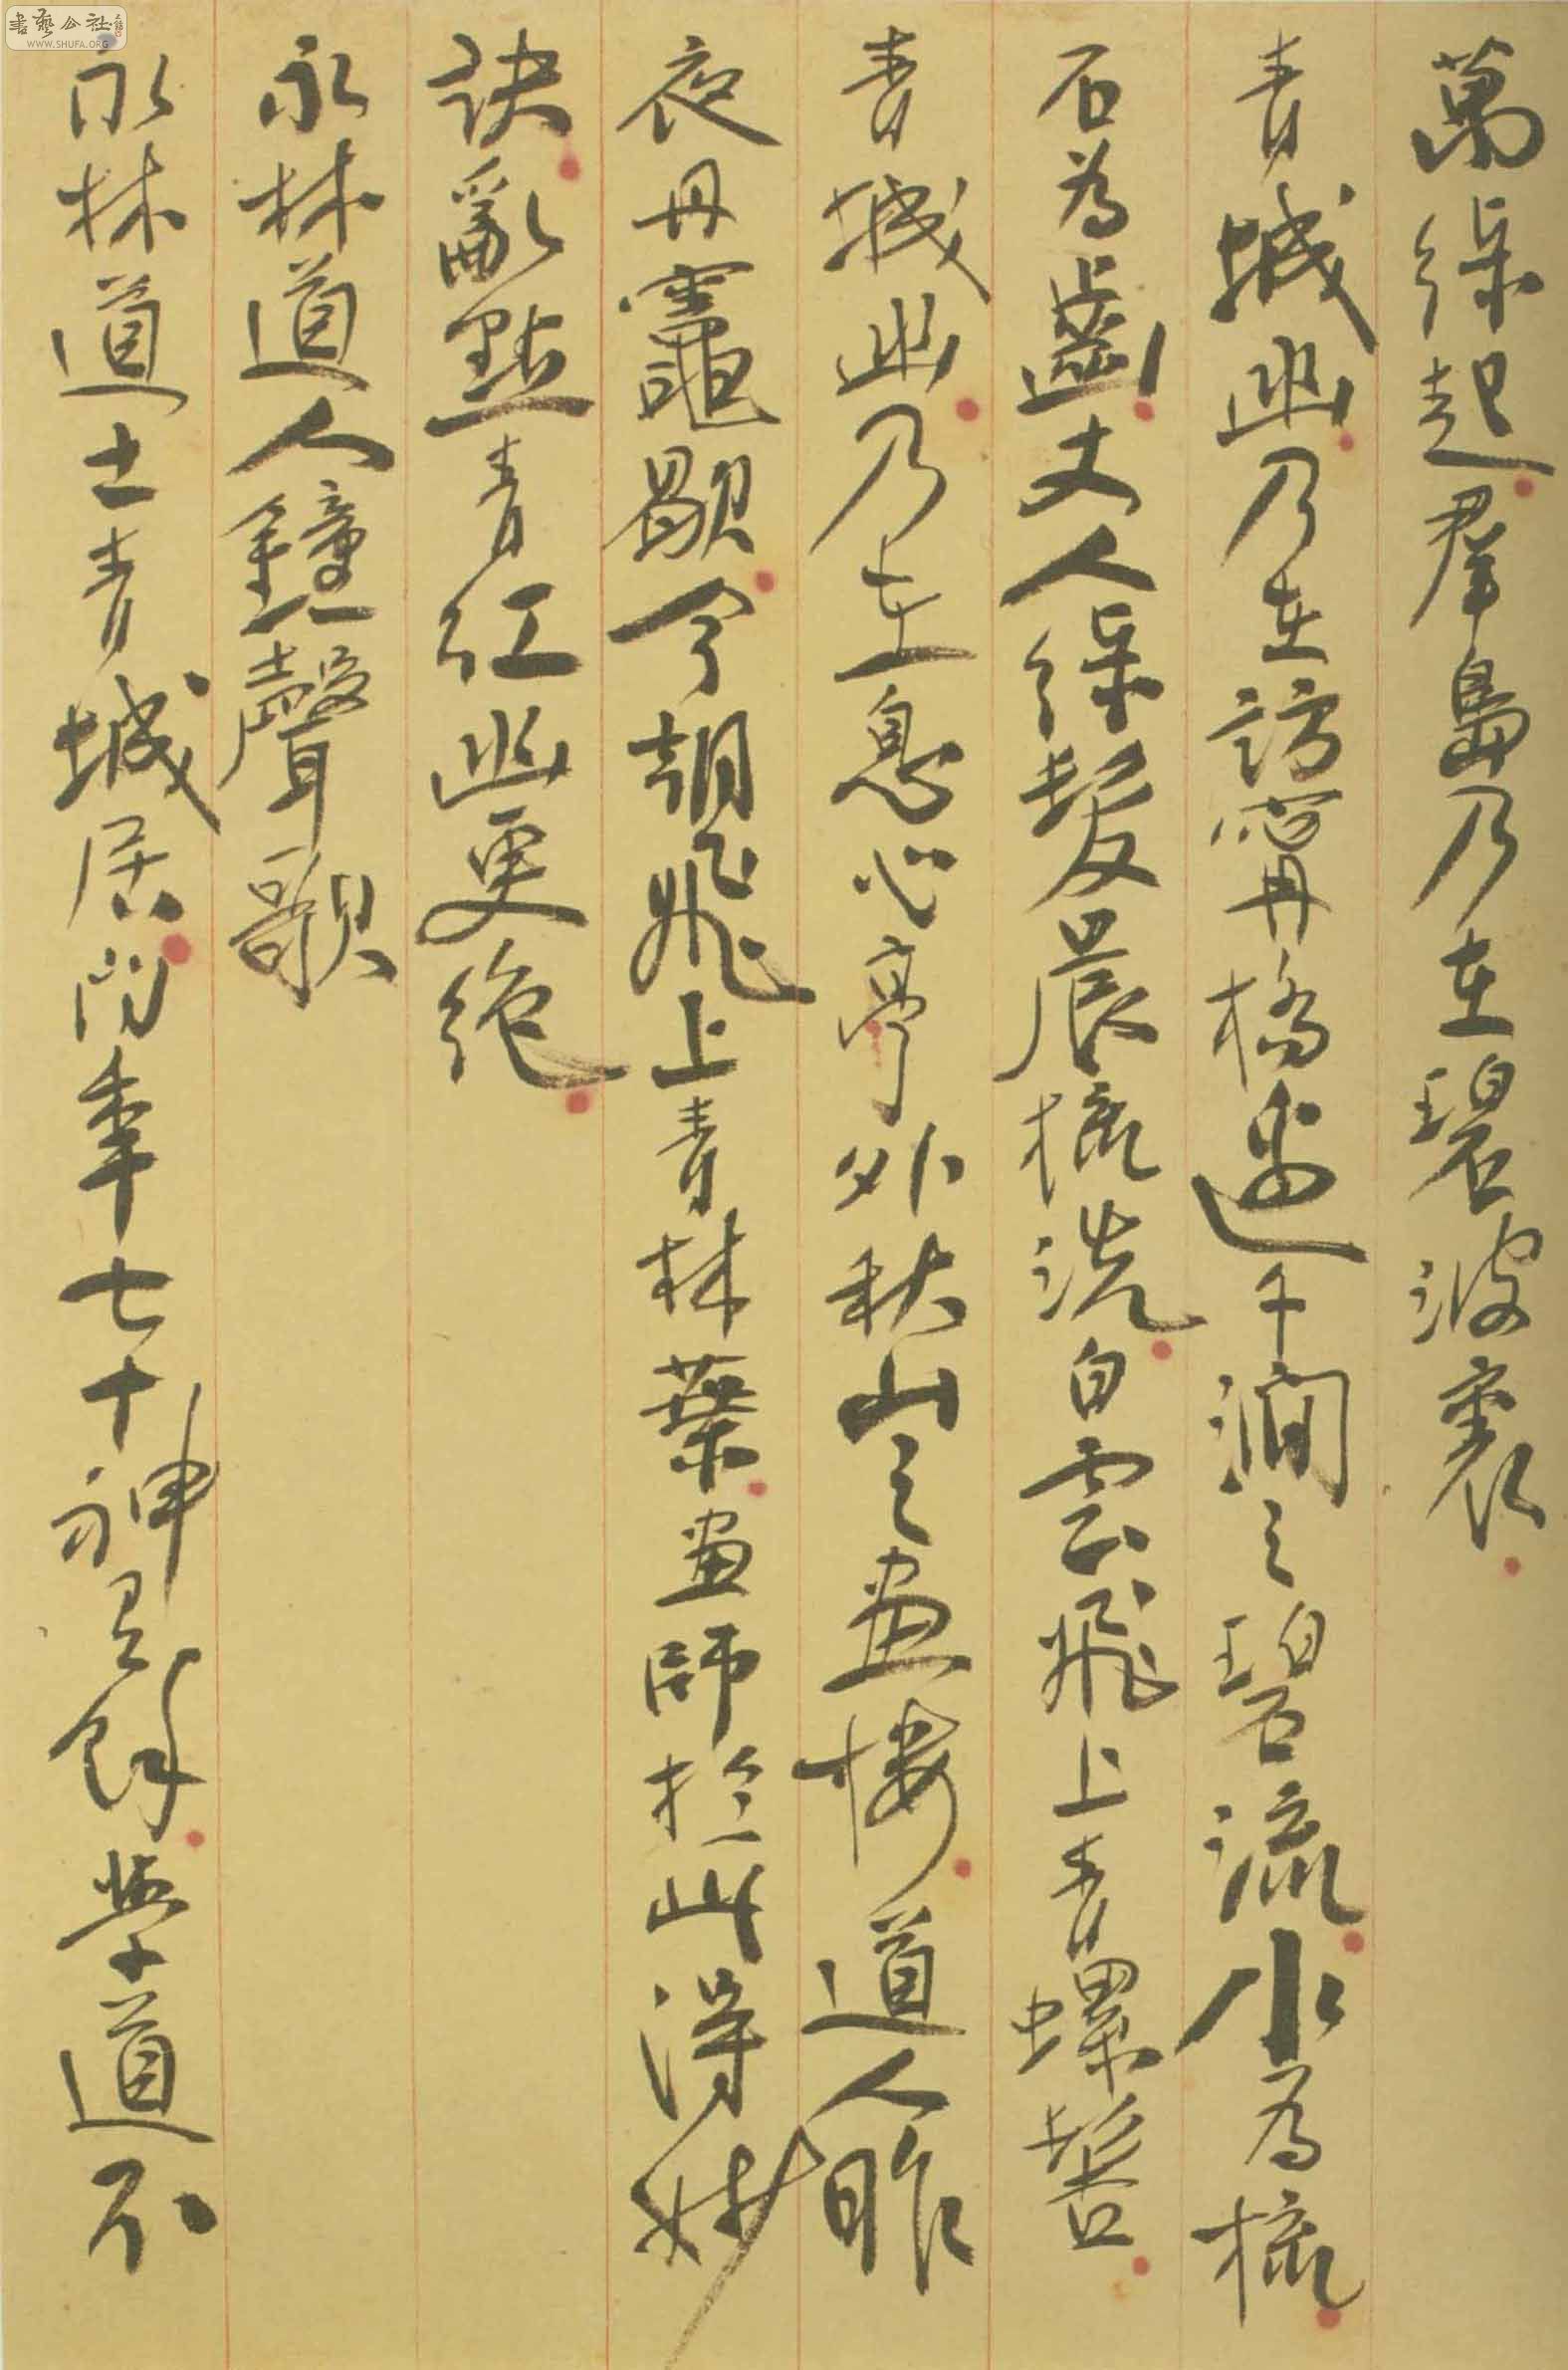 萬綠起群島乃在碧波裏
青城幽乃在訪寧橋邊千澗之碧流水為梳
石為齒丈人綠髮晨梳洗白雲飛上青螺髻
青城幽乃在息心亭外秋山之畫樓道人昨
夜丹竈歇今朝飛上青林葉畫師於此得妙
訣亂點青紅幽更絕
永林道人鐘聲歌
永林道士青城居閱年七十神有餘學道不
書藝公社
WWW.SHUFA.ORG